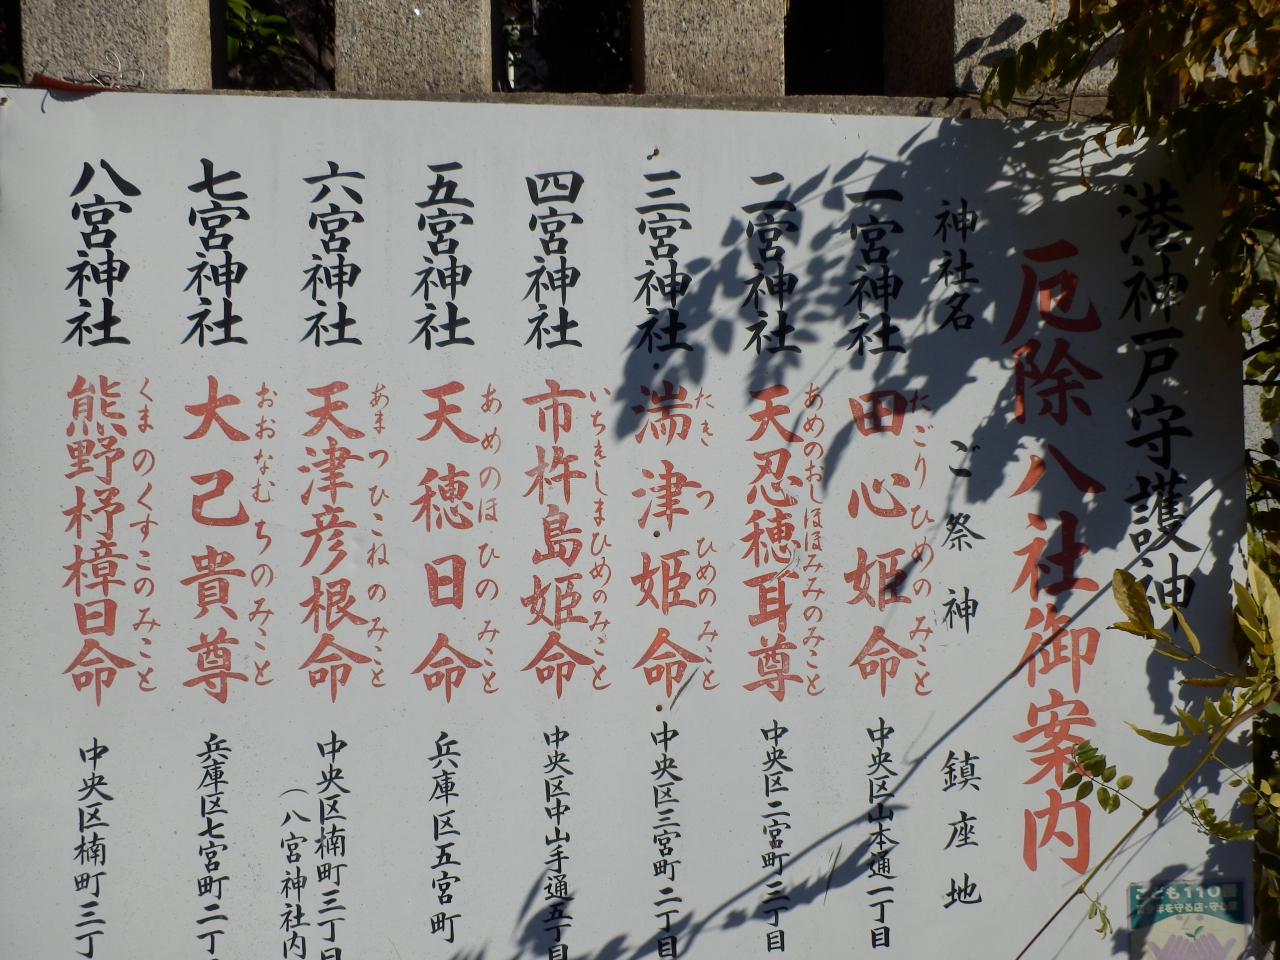 港神戸守護神
厄除八社御案内
神社名 ご祭神 鎮座地
一宮神社 田心姫命 中央区山本通一丁目
たごりひめのみこと
二宮神社 天忍穂耳尊 中央区二宮町三丁目
あめのおしほほみみのみこと
三宮神社 湍津姫命 中央区三宮町二丁目
たきつひめのみこと
四宮神社 市杵島姫命 中央区中山手通五丁目
いちきしまひめのみこと
五宮神社 天穂日命 兵庫区五宮町
あめのほひのみこと
六宮神社 天津彦根命 中央区楠町三丁目
あまつひこねのみこと
（八宮神社内
七宮神社 大己貴尊 兵庫区七宮町二丁
おおなむちのみこと
八宮神社 熊野杼樟日命 中央区楠町三丁
くまのくすこのみこと
こども110番